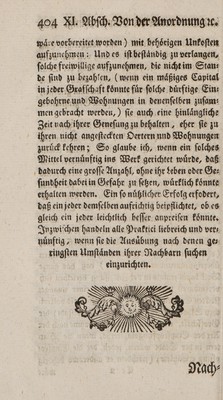 404 XI. Absch. Von der Anordnung ꝛc.
wäre vorbereitet worden) mit behörigen Unkosten
aufzunehmen: Und es ist beständig zu verlangen,
solche freywillige aufzunehmen, die nicht im Stan-
de sind zu bezahlen, (wenn ein mäßiges Capital
in jeder Grafschaft könnte für solche dürftige Ein-
gebohrne und Wohnungen in denenselben zusam-
men gebracht werden,) sie auch eine hinlängliche
Zeit nach ihrer Genesung zu behalten, eher sie zu
ihren nicht angesteckten Oertern und Wohnungen
zurück kehren; So glaube ich, wenn ein solches
Mittel vernünftig ins Werk gerichtet würde, daß
dadurch eine grosse Anzahl, ohne ihr Leben oder Ge-
sundheit dabei in Gefahr zu setzen, würklich könnte
erhalten werden. Ein so nützlicher Erfolg erfodert,
daß ein jeder demselben aufrichtig beipflichtet, ob es
gleich ein jeder leichtlich besser anpreisen könnte.
Inzwischen handeln alle Practici liebreich und ver-
nünftig, wenn sie die Ausübung nach denen ge-
ringsten Umständen ihrer Nachbarn suchen
einzurichten.
Nach-